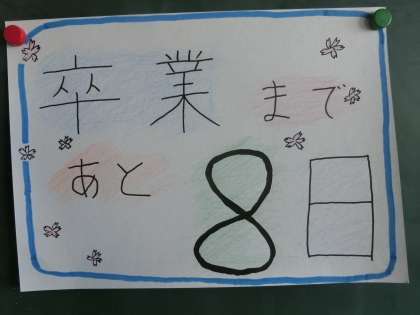 卒業まで
あと8日